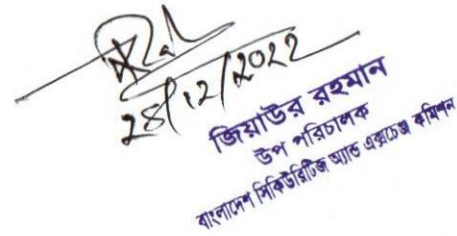 28/12/2022
জিয়াউর রহমান
উপ পরিচালক
বাংলাদেশ সিকিউরিটিজ অ্যান্ড এক্সচেঞ্জ কমিশন